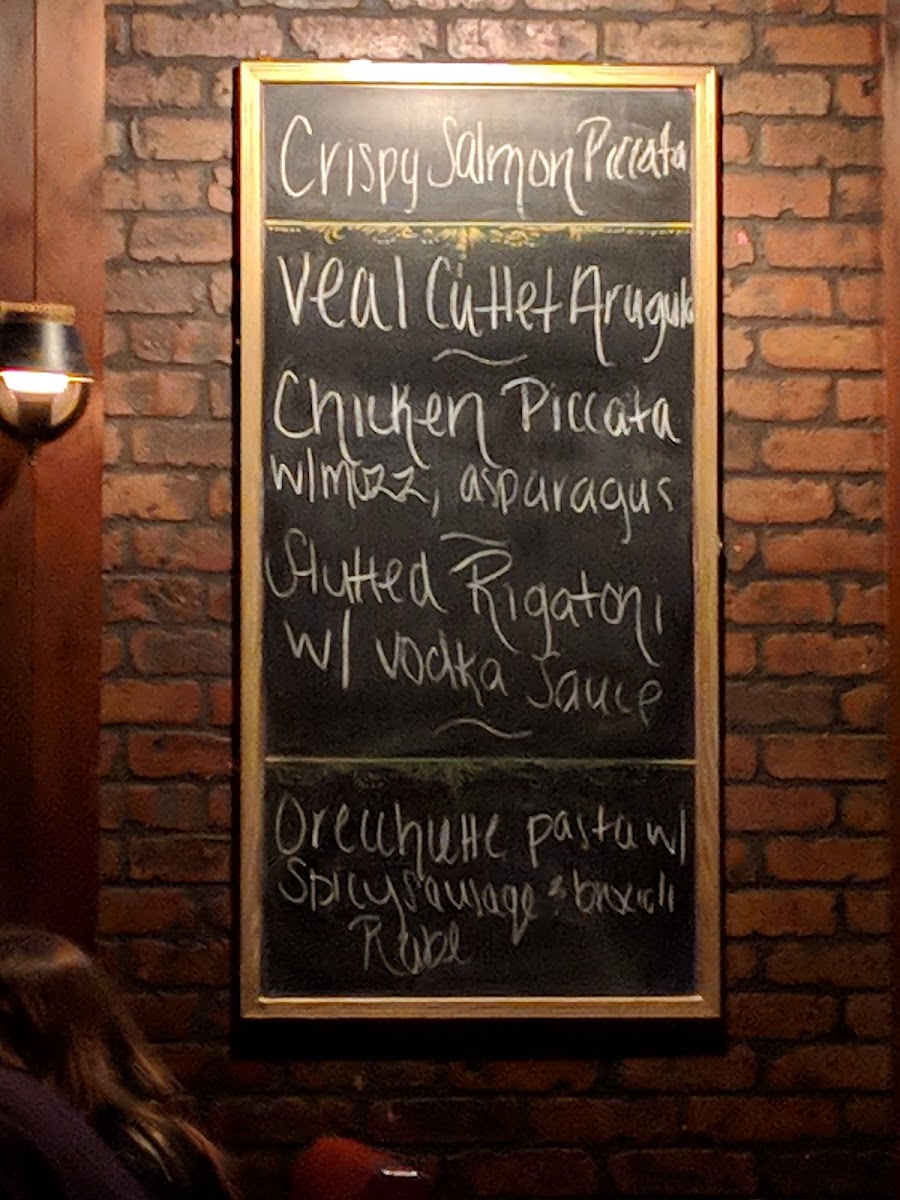 Crispy Salmon Piccata
Veal Cuttlet Arugula
Chicken Piccata
w/mozz, asparagus
Stuffed Rigatoni
w/ vodka Sauce
Orecchiette pasta w/
Spicy Sausage & broccoli
Rabe